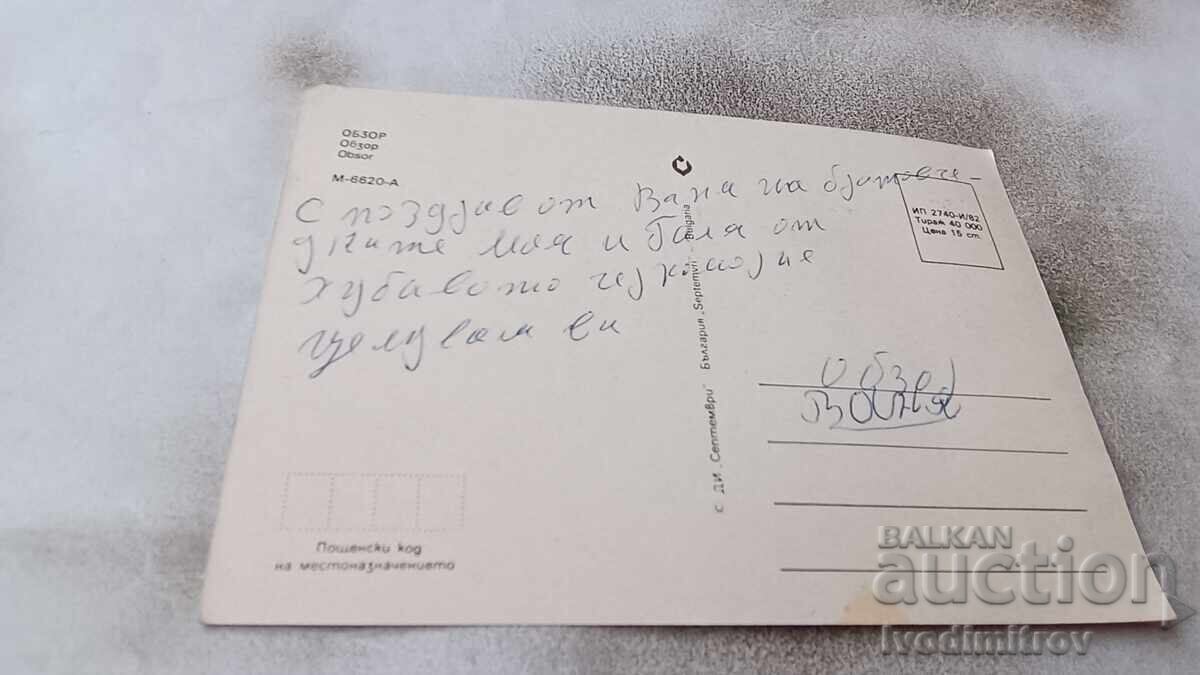 ОБЗОР
Обзор
Obsor
М-6620-А
С поздрав от Ваня на братовче-
дките моя и Галя от
хубавото черноморие
целувам ви
ИП 2740-И/82
Тираж 40 000
Цена 15 ст.
Обзор
Ваня
© ДИ „Септември" България „Septemvri" - Bulgaria
Пощенски код
на местоназначението
BALKAN
auction
Ivodimitrov